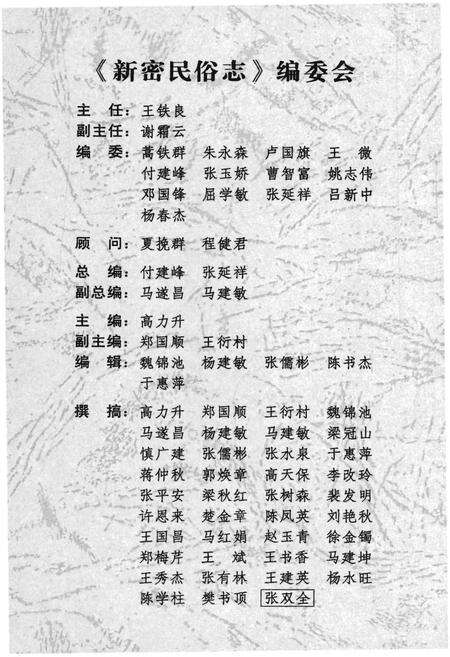 《新密民俗志》编委会
主　任：王铁良
副主任：谢霜云
编　委：蒿铁群　朱永森　卢国旗　王　微
付建峰　张玉娇　曹智富　姚志伟
邓国锋　屈学敏　张延祥　吕新中
杨春杰
顾　问：夏挽群　程健君
总　编：付建峰　张延祥
副总编：马遂昌　马建敏
主　编：高力升
副主编：郑国顺　王衍村
编　辑：魏锦池　杨建敏　张儒彬　陈书杰
于惠萍
撰　搞：高力升　郑国顺　王衍村　魏锦池
马遂昌　杨建敏　马建敏　梁冠山
慎广建　张儒彬　张水泉　于惠萍
蒋仲秋　郭焕章　高天保　李改玲
张平安　梁秋红　张树森　裴发明
许恩来　楚金章　陈凤英　刘艳秋
王国昌　马红娟　赵玉青　徐金镯
郑梅芹　王　斌　王书香　马建坤
王秀杰　张有林　王建英　杨水旺
陈学柱　樊书顶　张双全